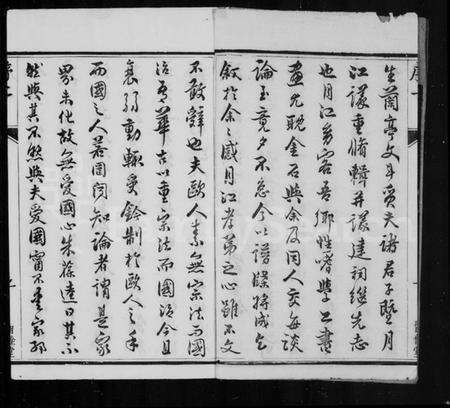 生蘭亭文斗貢夫諸君子暨月
江議重脩輯并議建祠繼先志
也月江多客吾鄉性嗜學工書
畫尤耽金石與余及同人交每談
論至竟夕不怠今以譜牒將成乞
敘於余余感月江孝弟之心雖不文
不敢辭也夫歐人素無宗法而國
治吾華古以重宗法而國治今且
衰弱動輒受鈐制於歐人之手
而國之人若罔聞知論者謂是家
界未化故無愛國心朱葆逵曰其不
然與其不然與夫愛國寧不重家